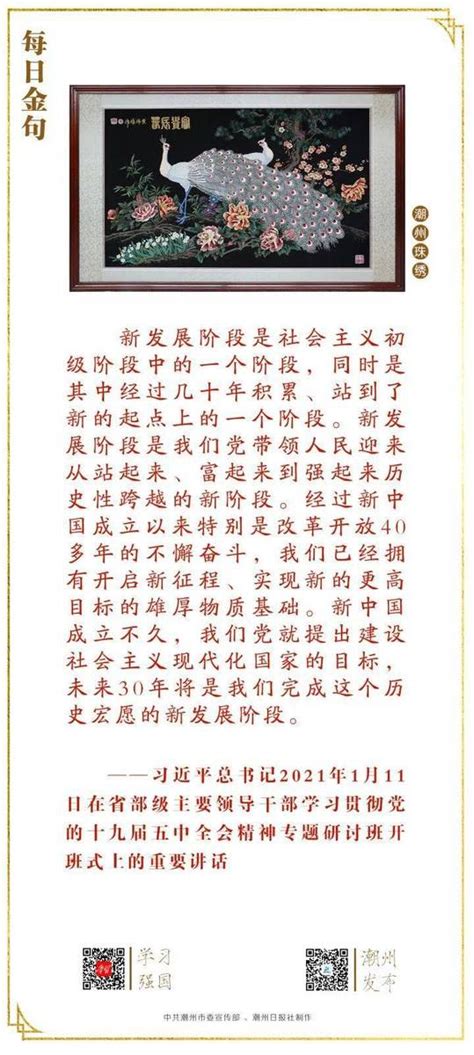 每日金句
潮州珠绣
新发展阶段是社会主义初
级阶段中的一个阶段，同时是
其中经过几十年积累、站到了
新的起点上的一个阶段。新发
展阶段是我们党带领人民迎来
从站起来、富起来到强起来历
史性跨越的新阶段。经过新中
国成立以来特别是改革开放40
多年的不懈奋斗，我们已经拥
有开启新征程、实现新的更高
目标的雄厚物质基础。新中国
成立不久，我们党就提出建设
社会主义现代化国家的目标，
未来30年将是我们完成这个历
史宏愿的新发展阶段。
——习近平总书记2021年1月11
日在省部级主要领导干部学习贯彻党
的十九届五中全会精神专题研讨班开
班式上的重要讲话
学习
强国
潮州
发布
中共潮州市委宣传部 、潮州日报社制作